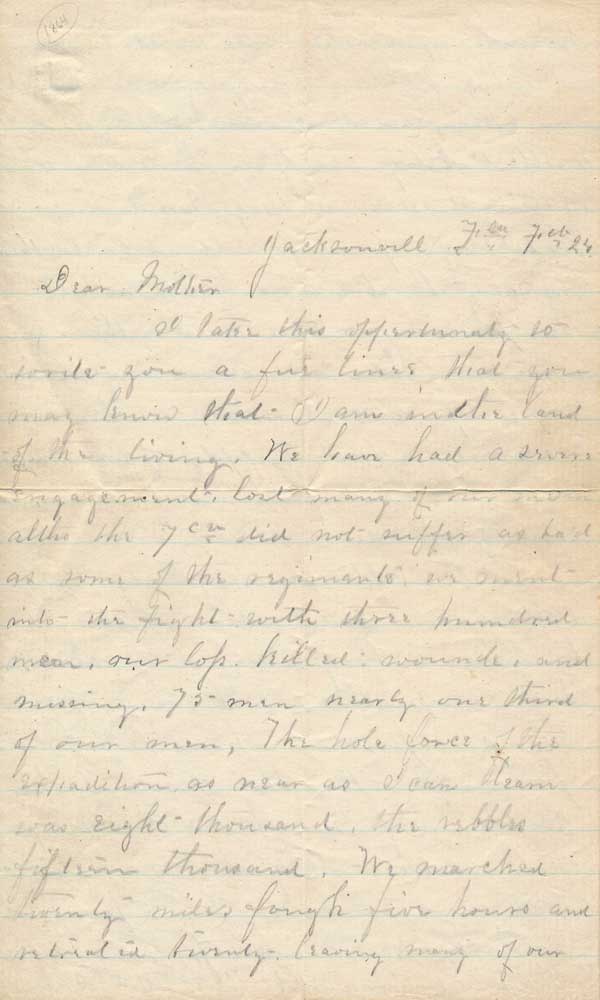 1864
Jacksonvill Fla Feb 24
Dear Mother
I take this oppertunaty to
write you a few lines that you
may know that I am in the land
of the living. We have had a severe
engagement, lost many of our men
altho the 7 did not suffer as bad
as some of the regiments, we went
into the fight with three hundred
men, our loss. killed, wounde, and
missing, 75 men nearly one third
of our men, The hole force of the
expadition as near as I can learn
was eight thousand, the rebbles
fifteen thousand. We marched
twenty miles fough five hours and
retreated twenty, leaving many of our